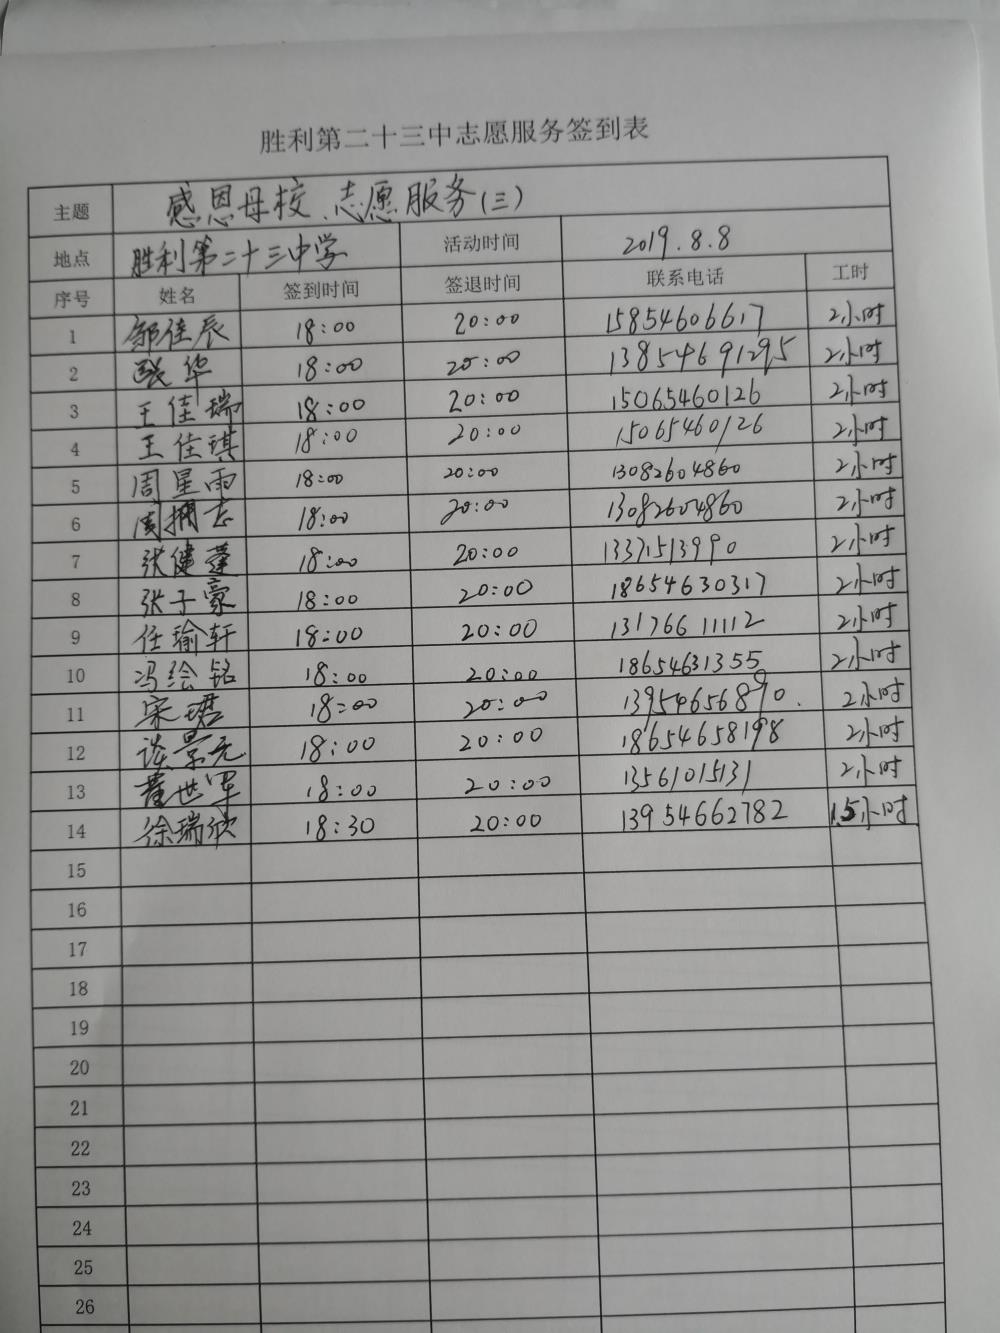 胜利第二十三中志愿服务签到表
主题 感恩母校、志愿服务(三)
地点 胜利第二十三中学 活动时间 2019.8.8
序号 姓名 签到时间 签退时间 联系电话 工时
1 邹佳辰 18:00 20:00 15854606617 2小时
2 张华 18:00 20:00 13854691295 2小时
3 王佳瑞 18:00 20:00 15065460126 2小时
4 王佳琪 18:00 20:00 15065460126 2小时
5 周星雨 18:00 20:00 13082604860 2小时
6 周拥志 18:00 20:00 13082604860 2小时
7 张健蓬 18:00 20:00 13371513990 2小时
8 张子豪 18:00 20:00 18654630317 2小时
9 任瑜轩 18:00 20:00 13176611112 2小时
10 冯绘铭 18:00 20:00 18654631355 2小时
11 宋珺 18:00 20:00 13954656890. 2小时
12 谈景元 18:00 20:00 18654658198 2小时
13 董世军 18:00 20:00 13561015131 2小时
14 徐瑞欣 18:30 20:00 13954662782 1.5小时
15
16
17
18
19
20
21
22
23
24
25
26